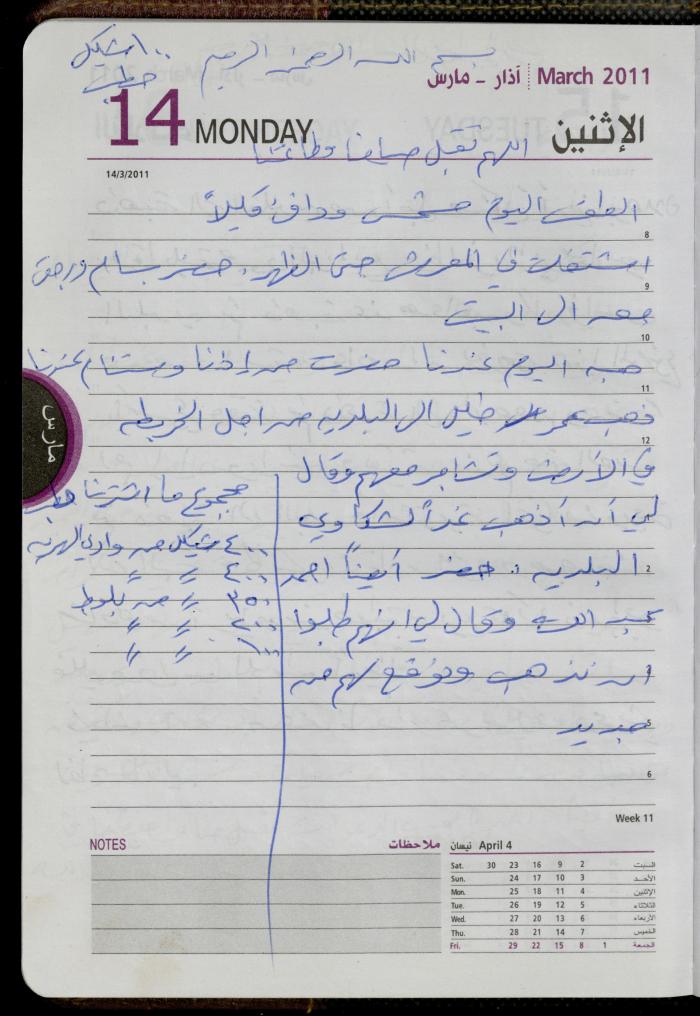 ١٠٠ شيكل
حطب
بسم الله الرحمن الرحيم
آذار - مارس March 2011
14 MONDAY الإثنين
اللهم تقبل صيامنا وطاعتنا
14/3/2011
الطقس اليوم مشمس ودافئ قليلاً
8
اشتغلت في المعرش حتى الظهر. حضر بسام ورجعت
9
معه الى البيت
10
هبه اليوم عندنا حضرت من إذنا وستنام عندنا
11
ذهب عمر خليل الى البلديه من اجل الخريطه
12
في الأرض وتشاجر معهم وقال
لي أن أذهب غداً لشكاوي
البلديه. حضر أيضاً احمد
2
عبد الله وقال لي انهم طلبوا
ان نذهب ونوقع لهم من
جديد
5
6
مجموع ما اشترينا حطب
٤٠٠ شيكل من وادي الهريه
٤٠٠ = =
٣٥٠ = من بلوط
٢٠٠ = =
١٠٠ = =
مارس
Week 11
NOTES ملاحظات
نيسان April 4
Sat. 30 23 16 9 2 السبت
Sun. 24 17 10 3 الأحد
Mon. 25 18 11 4 الإثنين
Tue. 26 19 12 5 الثلاثاء
Wed. 27 20 13 6 الأربعاء
Thu. 28 21 14 7 الخميس
Fri. 29 22 15 8 1 الجمعة